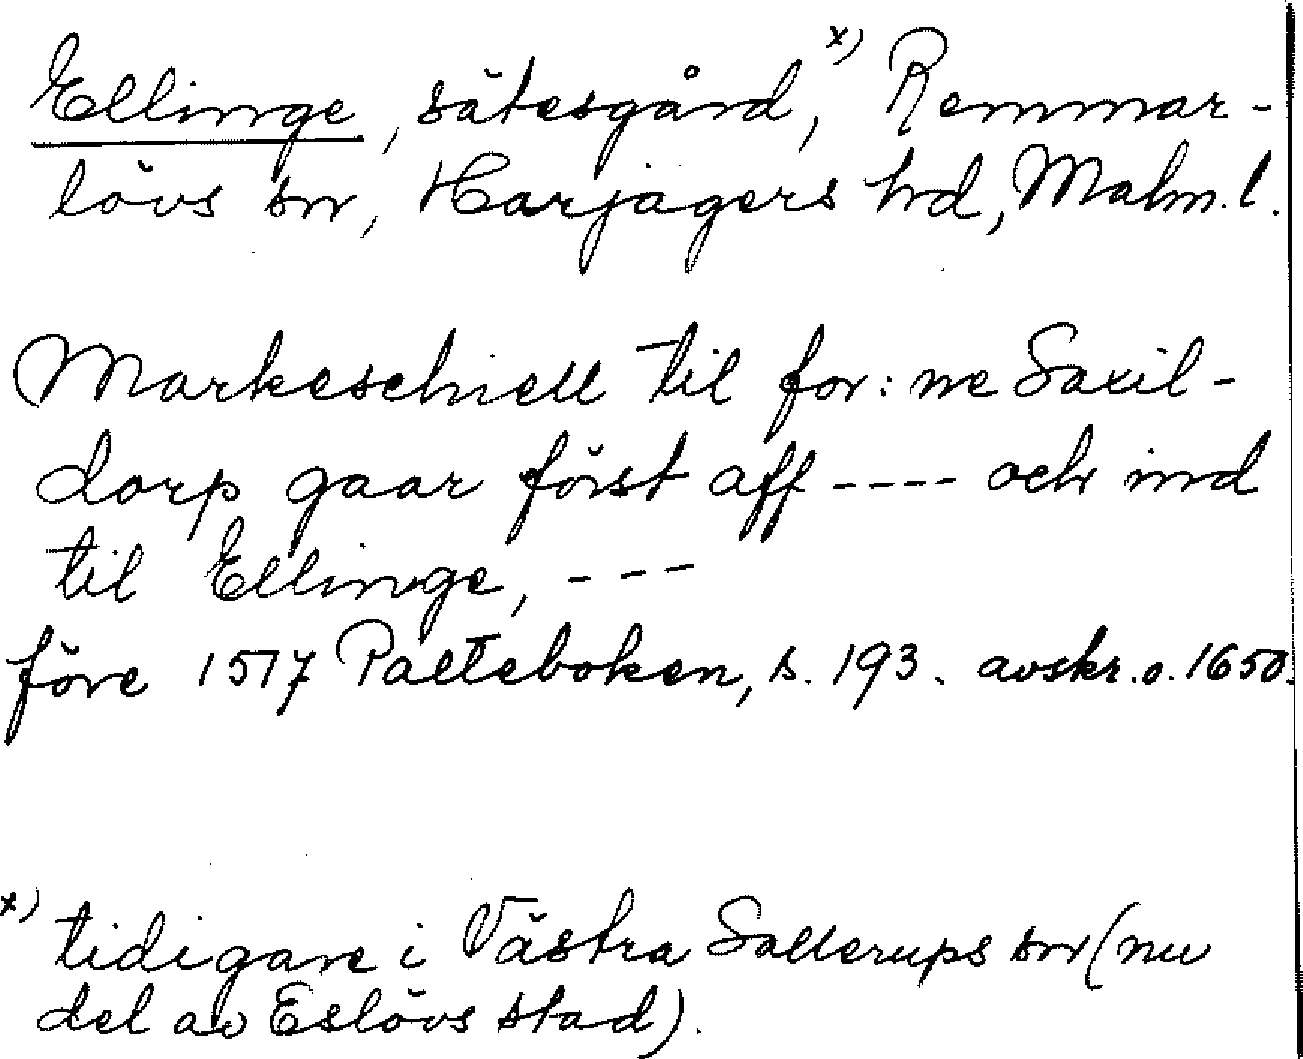 Ellinge, sätesgård, x) Remmar-
lövs sn, Harjagers hd, Malm. l.
Markeschiell til for: ne Saxil-
dorp gaar först aff ---- och ind
til Ellinge, ---
före 1517 Palteboken, s. 193. avskr. o. 1650.
x) tidigare i Västra Sallerups sn (nu
del av Eslövs stad).